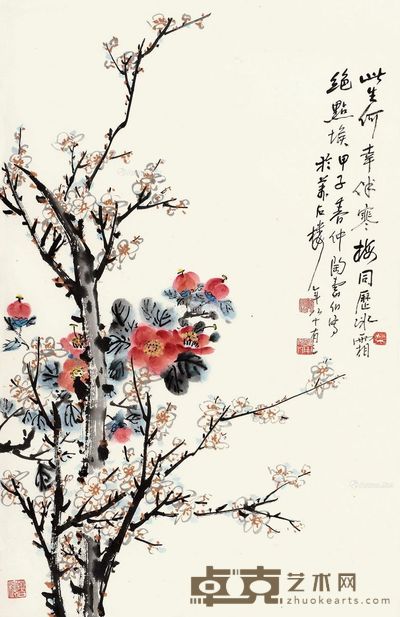 此生何幸伴寒梅同歷冰霜
絕點埃甲子春仲陶壽伯寫
於萬石樓
年八十有三
卓克艺术网
www.zhuokearts.com